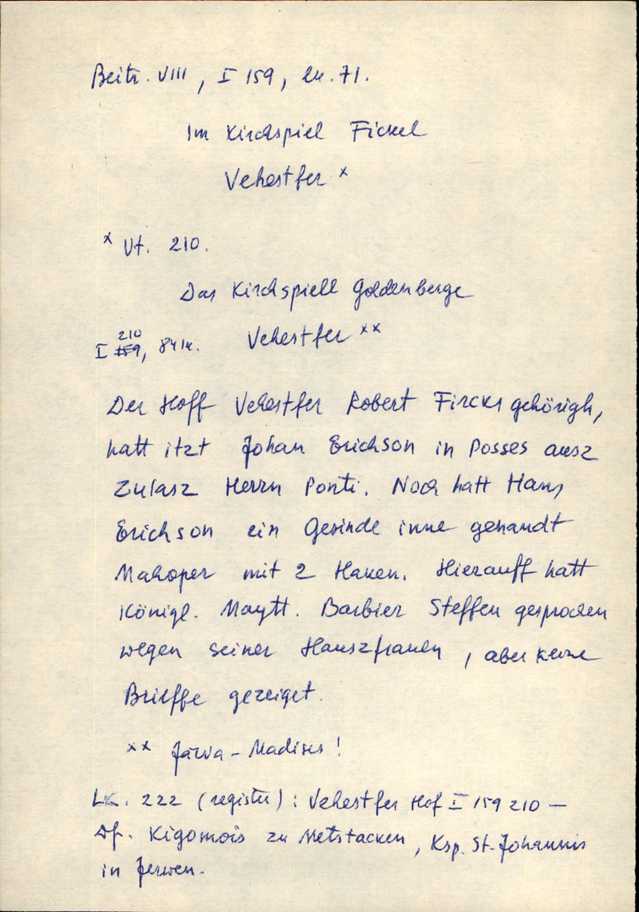 Beitr. VIII, I 159, lk. 71.
Im Kirchspiel Fickel
Vehestfer x
x Vt. 210.
Das Kirchspiell Goldenberge
210
I 159, 84 lk. Vehestfer xx
Der Hoff Vehestfer Robert Fircks gehörigh,
hatt itzt Johan Erichson in Posses ausz
Zulasz Herrn Ponti. Noch hatt Hans
Erichson ein Gesinde inne genandt
Mahoper mit 2 Haken. Hierauff hatt
Königl. Maytt. Barbier Steffen gesprochen
wegen seiner Hauszfrauen, aber keine
Brieffe gezeiget.
xx Järva-Madises!
Lk. 222 (register): Vehestfer Hof I 159 210 —
Df. Kigomois zu Metstacken, Ksp. St. Johannis
in Jerwen.